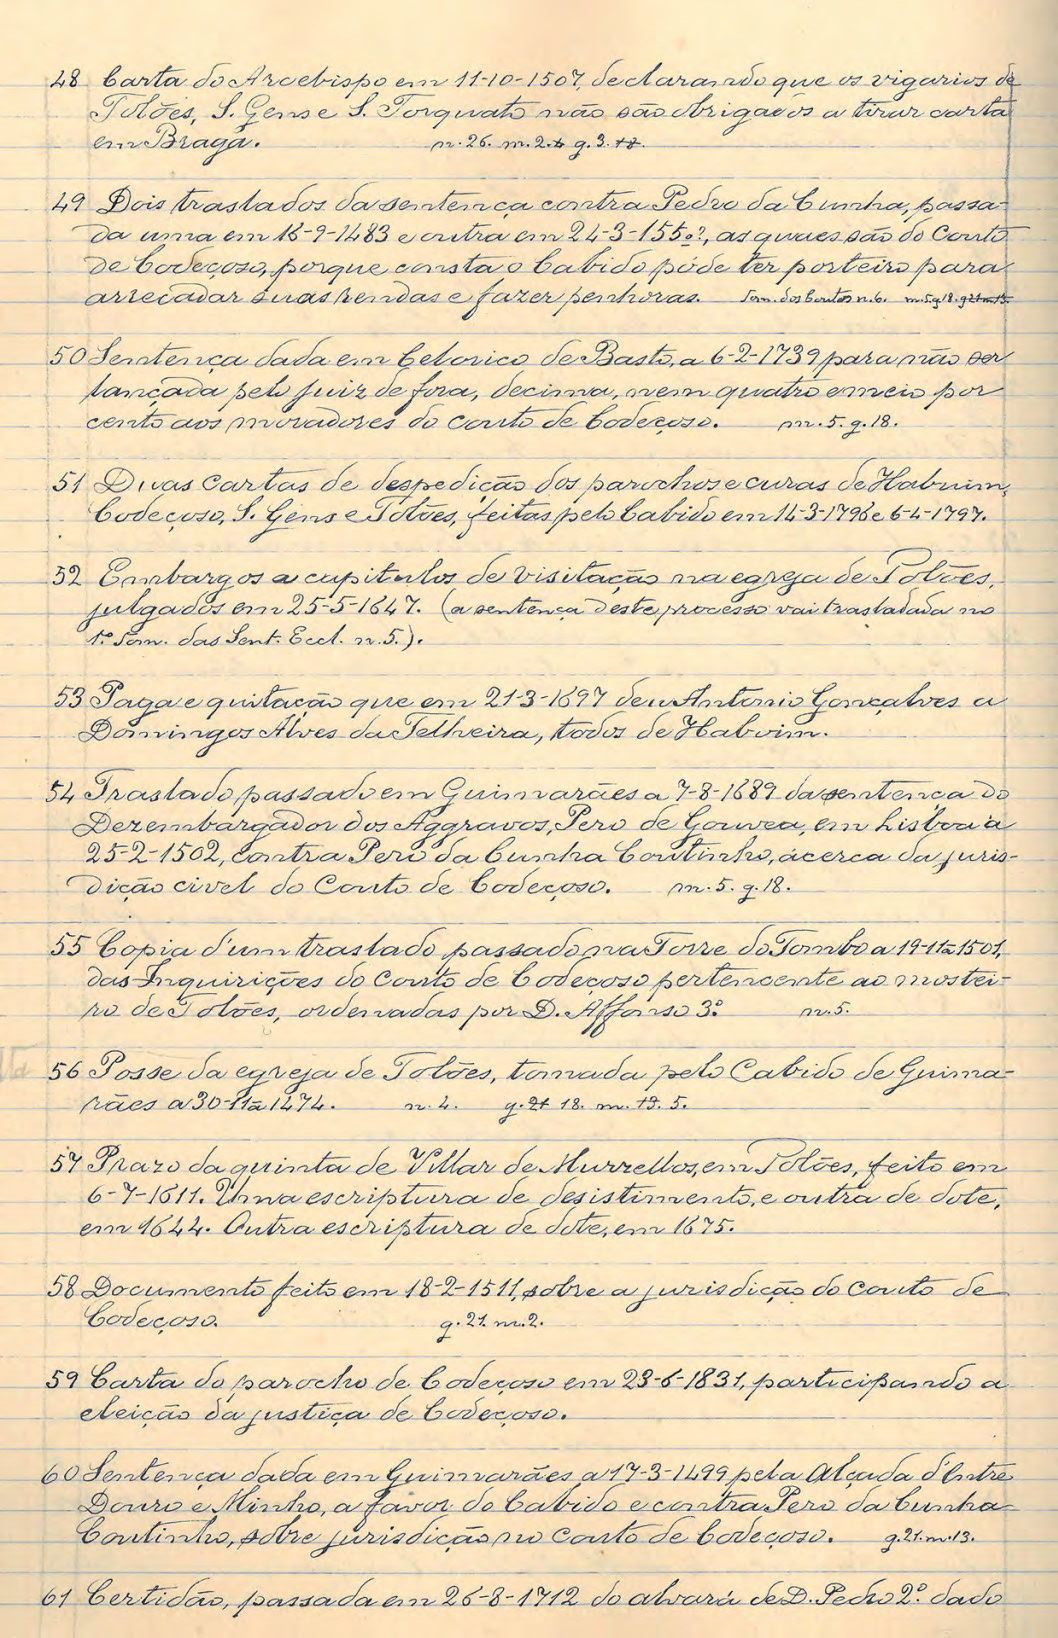 48 Carta do Arcebispo em 11-10-1507, declarando que os vigarios de
Tolões, S. Gens e S. Torquato não são obrigados a tirar carta
em Braga. n. 26. m. 2. g. 3.
49 Dois traslados da sentença contra Pedro da Cunha, passa-
da uma em 16-9-1483 e outra em 24-3-155o?, as quaes são do Couto
de Codeçoso, porque consta o Cabido póde ter porteiro para
arrecadar suas rendas e fazer penhoras. Tom. dos Coutos n. 6. m. 5. g. 18.
50 Sentença dada em Celorico de Basto, a 6-2-1739 para não ser
lançada pelo juiz de fora, decima, nem quatro e meio por
cento aos moradores do couto de Codeçoso. m. 5. g. 18.
51 Duas cartas de despedição dos parochos e curas de Haboim,
Codeçoso, S. Gens e Tolões, feitas pelo Cabido em 14-3-1796 e 6-4-1797.
52 Embargos a capitulos de visitação na egreja de Tolões,
julgados em 25-5-1647. (a sentença deste processo vai trasladada no
1º Tom. das Sent. Eccl. n. 5.).
53 Paga e quitação que em 21-3-1697 deu Antonio Gonçalves a
Domingos Alves da Telheira, todos de Haboim.
54 Traslado passado em Guimarães a 7-8-1689 da sentença do
Dezembargador dos Aggravos, Pero de Gouvea, em Lisboa a
25-2-1502, contra Pero da Cunha Coutinho, ácerca da juris-
dição civel do Couto de Codeçoso. m. 5. g. 18.
55 Copia d'um traslado passado na Torre do Tombo a 19-11-1501,
das Inquirições do Couto de Codeçoso pertencente ao mostei-
ro de Tolões, ordenadas por D. Affonso 3º. m. 5.
56 Posse da egreja de Tolões, tomada pelo Cabido de Guima-
rães a 30-11-1474. n. 4. g. 18. m. 5.
57 Prazo da quinta de Villar de Murzellos, em Tolões, feito em
6-7-1611. Uma escriptura de desistimento, e outra de dote,
em 1644. Outra escriptura de dote, em 1675.
58 Documento feito em 18-2-1511, sobre a jurisdição do couto de
Codeçoso. g. 21. m. 2.
59 Carta do parocho de Codeçoso em 23-6-1831, participando a
eleição da justiça de Codeçoso.
60 Sentença dada em Guimarães a 17-3-1499 pela Alçada d'Entre
Douro e Minho, a favor do Cabido e contra Pero da Cunha
Coutinho, sobre jurisdição no Couto de Codeçoso. g. 21. m. 13.
61 Certidão, passada em 26-8-1712 do alvará de D. Pedro 2º dado